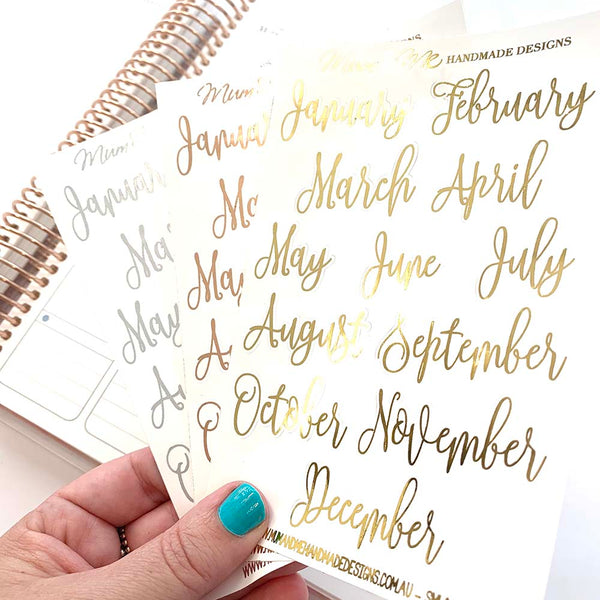 Mum & Me HANDMADE DESIGNS
January February
March April
May June July
August September
October November
December
WWW.MUMANDMEHANDMADEDESIGNS.COM.AU - SM
Mum
Januar
Ma
Ma
A
Mum
Januar
Ma
May
A
O